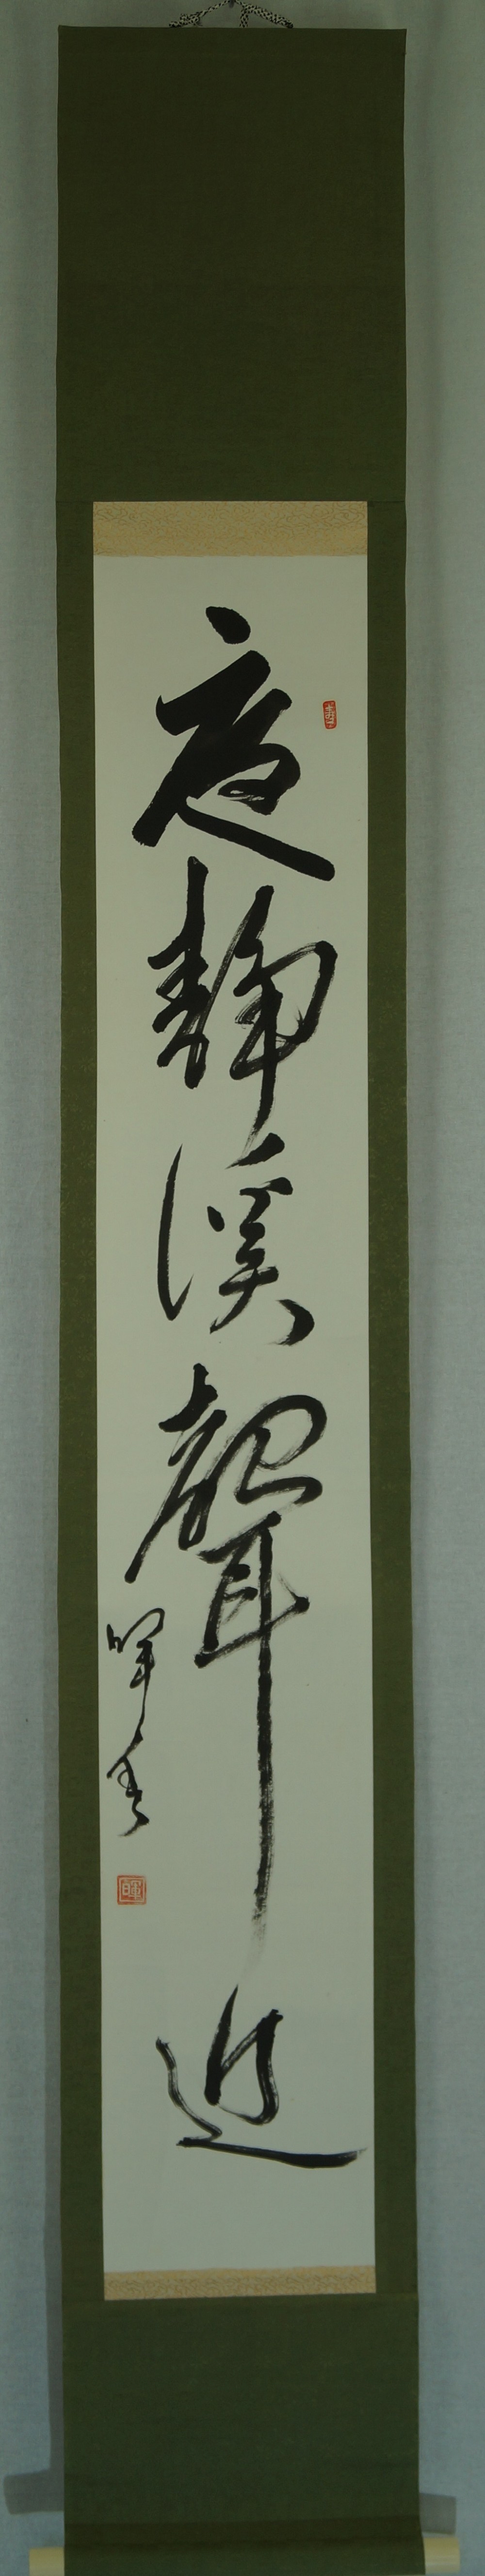 夜静溪聲近